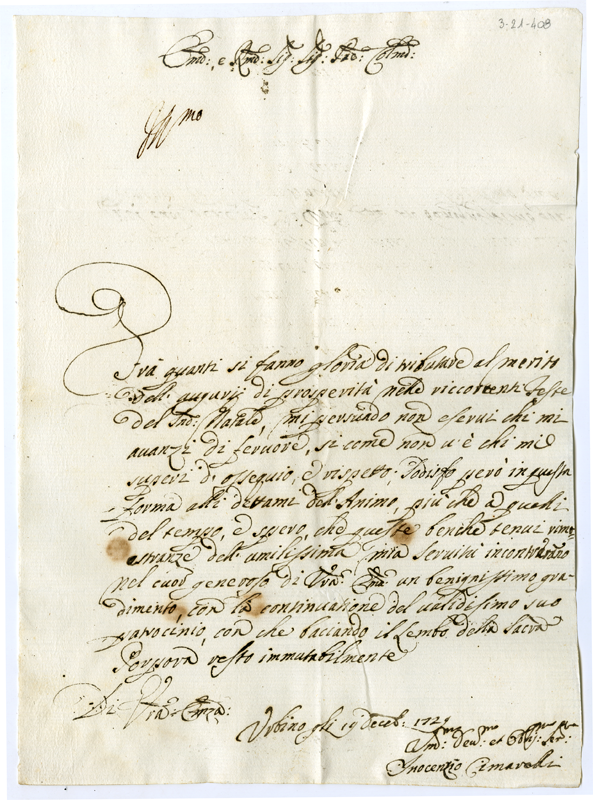 3-21-408
Emo: e Rmo: Sig: Sig: Pad: Colmo:
Frà quanti si fanno gloria di tributare al merito
dell' augurij di prosperità nelle riccorrenti feste
del Sto: Natale, mi persuado non eservi chi mi
avanzi di fervore, si come non v'è chi mi
superi d'ossequio, e rispetto; Sodisfo però in questa
forma alli dettami dell'Animo, più che à quelli
del tempo, e spero, che queste benche tenui rimo=
stranze dell' umilissima mia servitù incontreranno
nel cuor generoso di Vra: Emza: un benignissimo gra-
dimento, con la continuazione del validissimo suo
patrocinio, con che bacciando il Lembo della Sacra
Porpora resto immutabilmente
Di Vra: Emza:
Urbino gli 19 Deceb: 1729
Umo Devmo: et Obligmo Sre:
Inocenzo